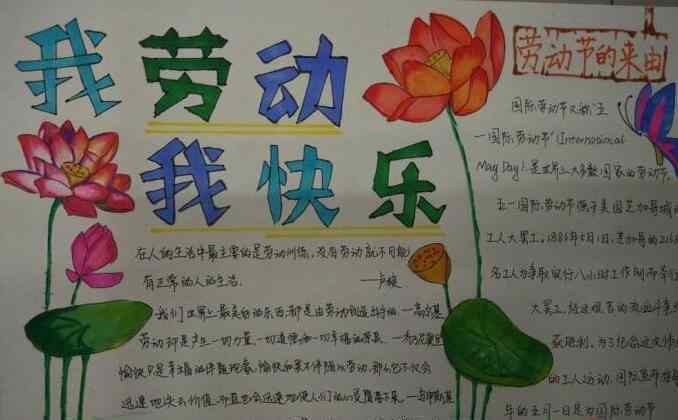 我劳动
我快乐
在人的生活中最主要的是劳动训练,没有劳动就不可能
有正常的人的生活。 ——卢梭
我们世界上最美好的东西都是由劳动创造出来的 —高尔基
劳动却是产生一切力量、一切道德和一切幸福的
愉快只是幸福的伴随现象,愉快如果不伴随以劳动,那么它不仅会
迅速地失去价值,而且也会迅速地使人们的心灵
劳动节的来由
国际劳动节又称"五
一国际劳动节"(International
May Day),是世界上大多数国家的劳动节。
五一国际劳动节源于美国芝加哥城的
工人大罢工。1886年5月1日,芝加哥的216
名工人为争取实行八小时工作制而举行
大罢工,经过艰苦的流血斗争
获胜利。为了纪念这次伟
的工人运动,国际
年的五月一日定为国际劳动节